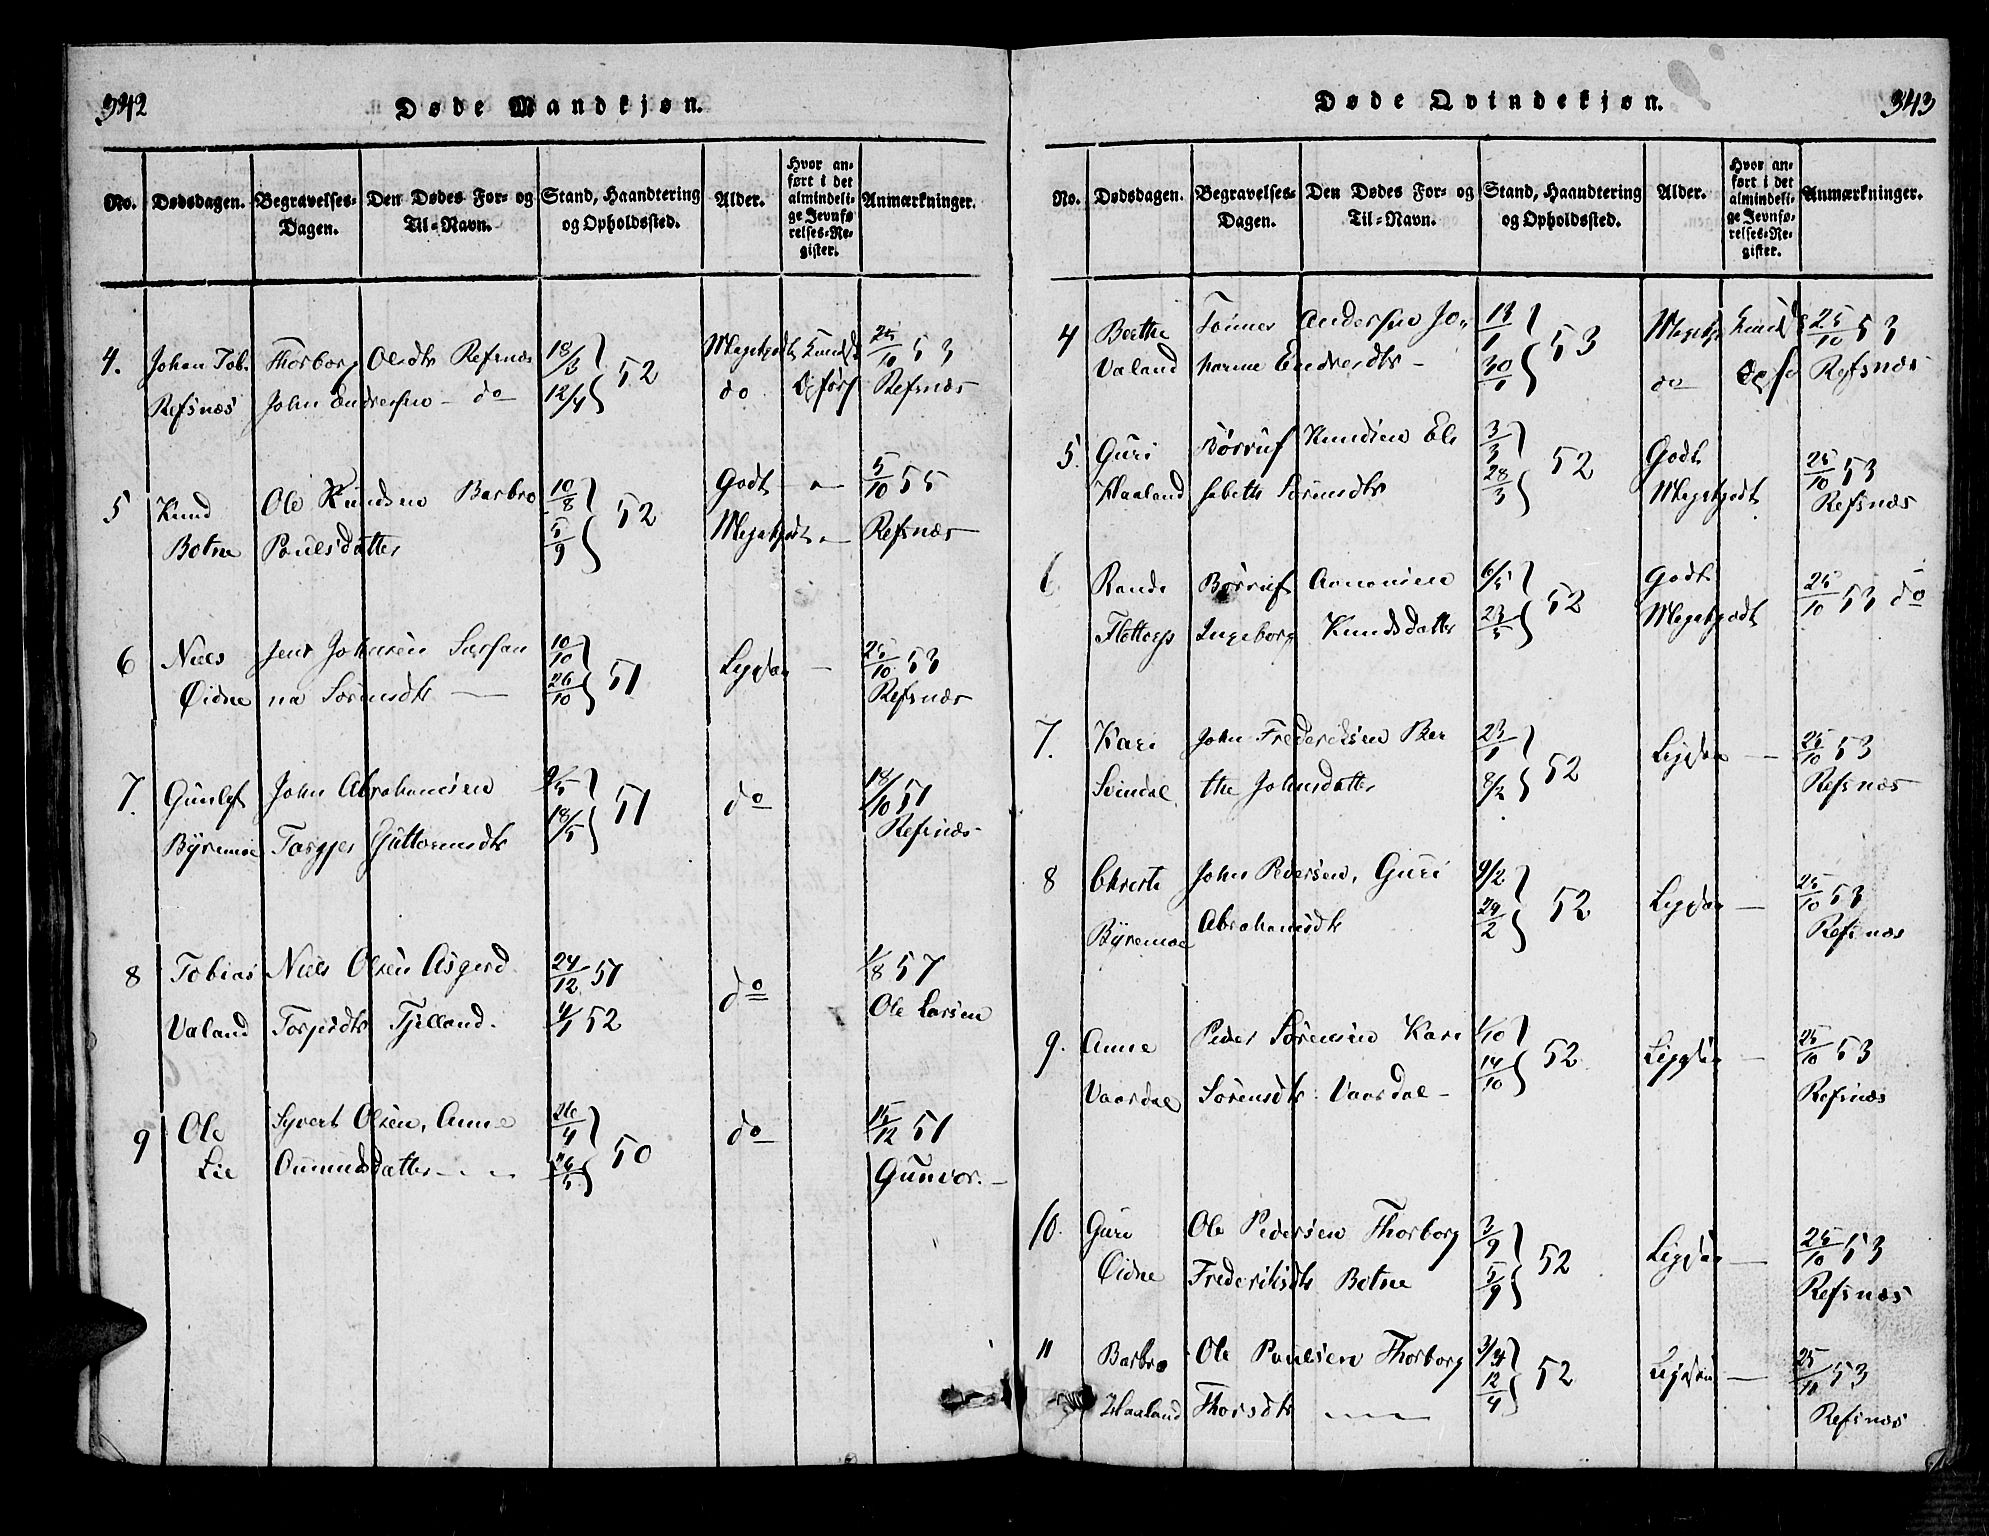 342
Døde Mandkjøn.
No. Dødsdagen. Begravelses-Dagen. Den Dødes For- og Til-Navn. Stand, Haandtering og Opholdssted. Alder. Hvor anført i det almindelige Jevnførelses-Register. Anmærkninger.
4. Johan Tob. Thorborg Olsdtr Refsnæs 18/3 } 52 Megetgodt Kundsk 25/10 53
Refsnæs John Andersen - do 12/4 do Opførs Refsnæs
5 Knud Ole Knudsen Barbro 10/8 } 52 Godt — 5/10 55
Botne Paulsdatter 5/9 Megetgodt — Refsnæs
6 Niels Jens Johnsen 10/10 } 51 — 25/10 53
Øidne na Sørensdtr — 26/10 Refsnæs
7. Gunlef John Abrahamsen 9/5 } 51 do 18/10 51
Byremoe Guttormsdtr 18/5 Refsnæs
8 Tobias Niels Olsen Asgerd 24/12 51 do 1/8 57
Valand Torjersdtr Tjelland. 4/1 52 Ole Larsen
9 Ole Syvert Olsen, Anne 26/4 } 50 do 15/12 51
Lie Omundsdatter — Gunvor. —
343
Døde Qvindekjøn.
No. Dødsdagen. Begravelses-Dagen. Den Dødes For- og Til-Navn. Stand, Haandtering og Opholdssted. Alder. Hvor anført i det almindelige Jevnførelses-Register. Anmærkninger.
4 Berthe Tønnes Andersen Jo- 13/1 } 53 25/10 53
Valand hanne Endresdtr — 30/1 do Refsnæs
5. Guri Børruf Knudsen Eli 3/3 } 52 Godt 25/10 53
Haaland sabeth Sørensdtr 28/3 Megetgodt Refsnæs
6 Rande Børruf Aanonsen 6/5 } 52 Godt 25/10 53 do
Ingeborg Knudsdatter 23/5 Megetgodt
7. Kari John Frederiksen Ber 23/1 } 52 — 25/10 53
Svindal the Johnsdatter 8/2 Refsnæs
8 John Pedersen, Guri 9/2 } 52 — 25/10 53
Byremoe Abrahamsdtr 29/2 Refsnæs
9. Anne Peder Sørensen Kari 1/10 } 52 — 25/10 53
Vaardal Sørensdtr Vaardal — 14/10 Refsnæs
10. Guri Ole Pedersen Thorborg 3/9 } 52 — 25/10 53
Øidne Frederiksdtr Botne 5/9 Refsnæs
11 Barbro Ole Paulsen Thorborg 3/4 } 52 — 25/10 53
Haaland Thorsdtr — 12/4 Refsnæs